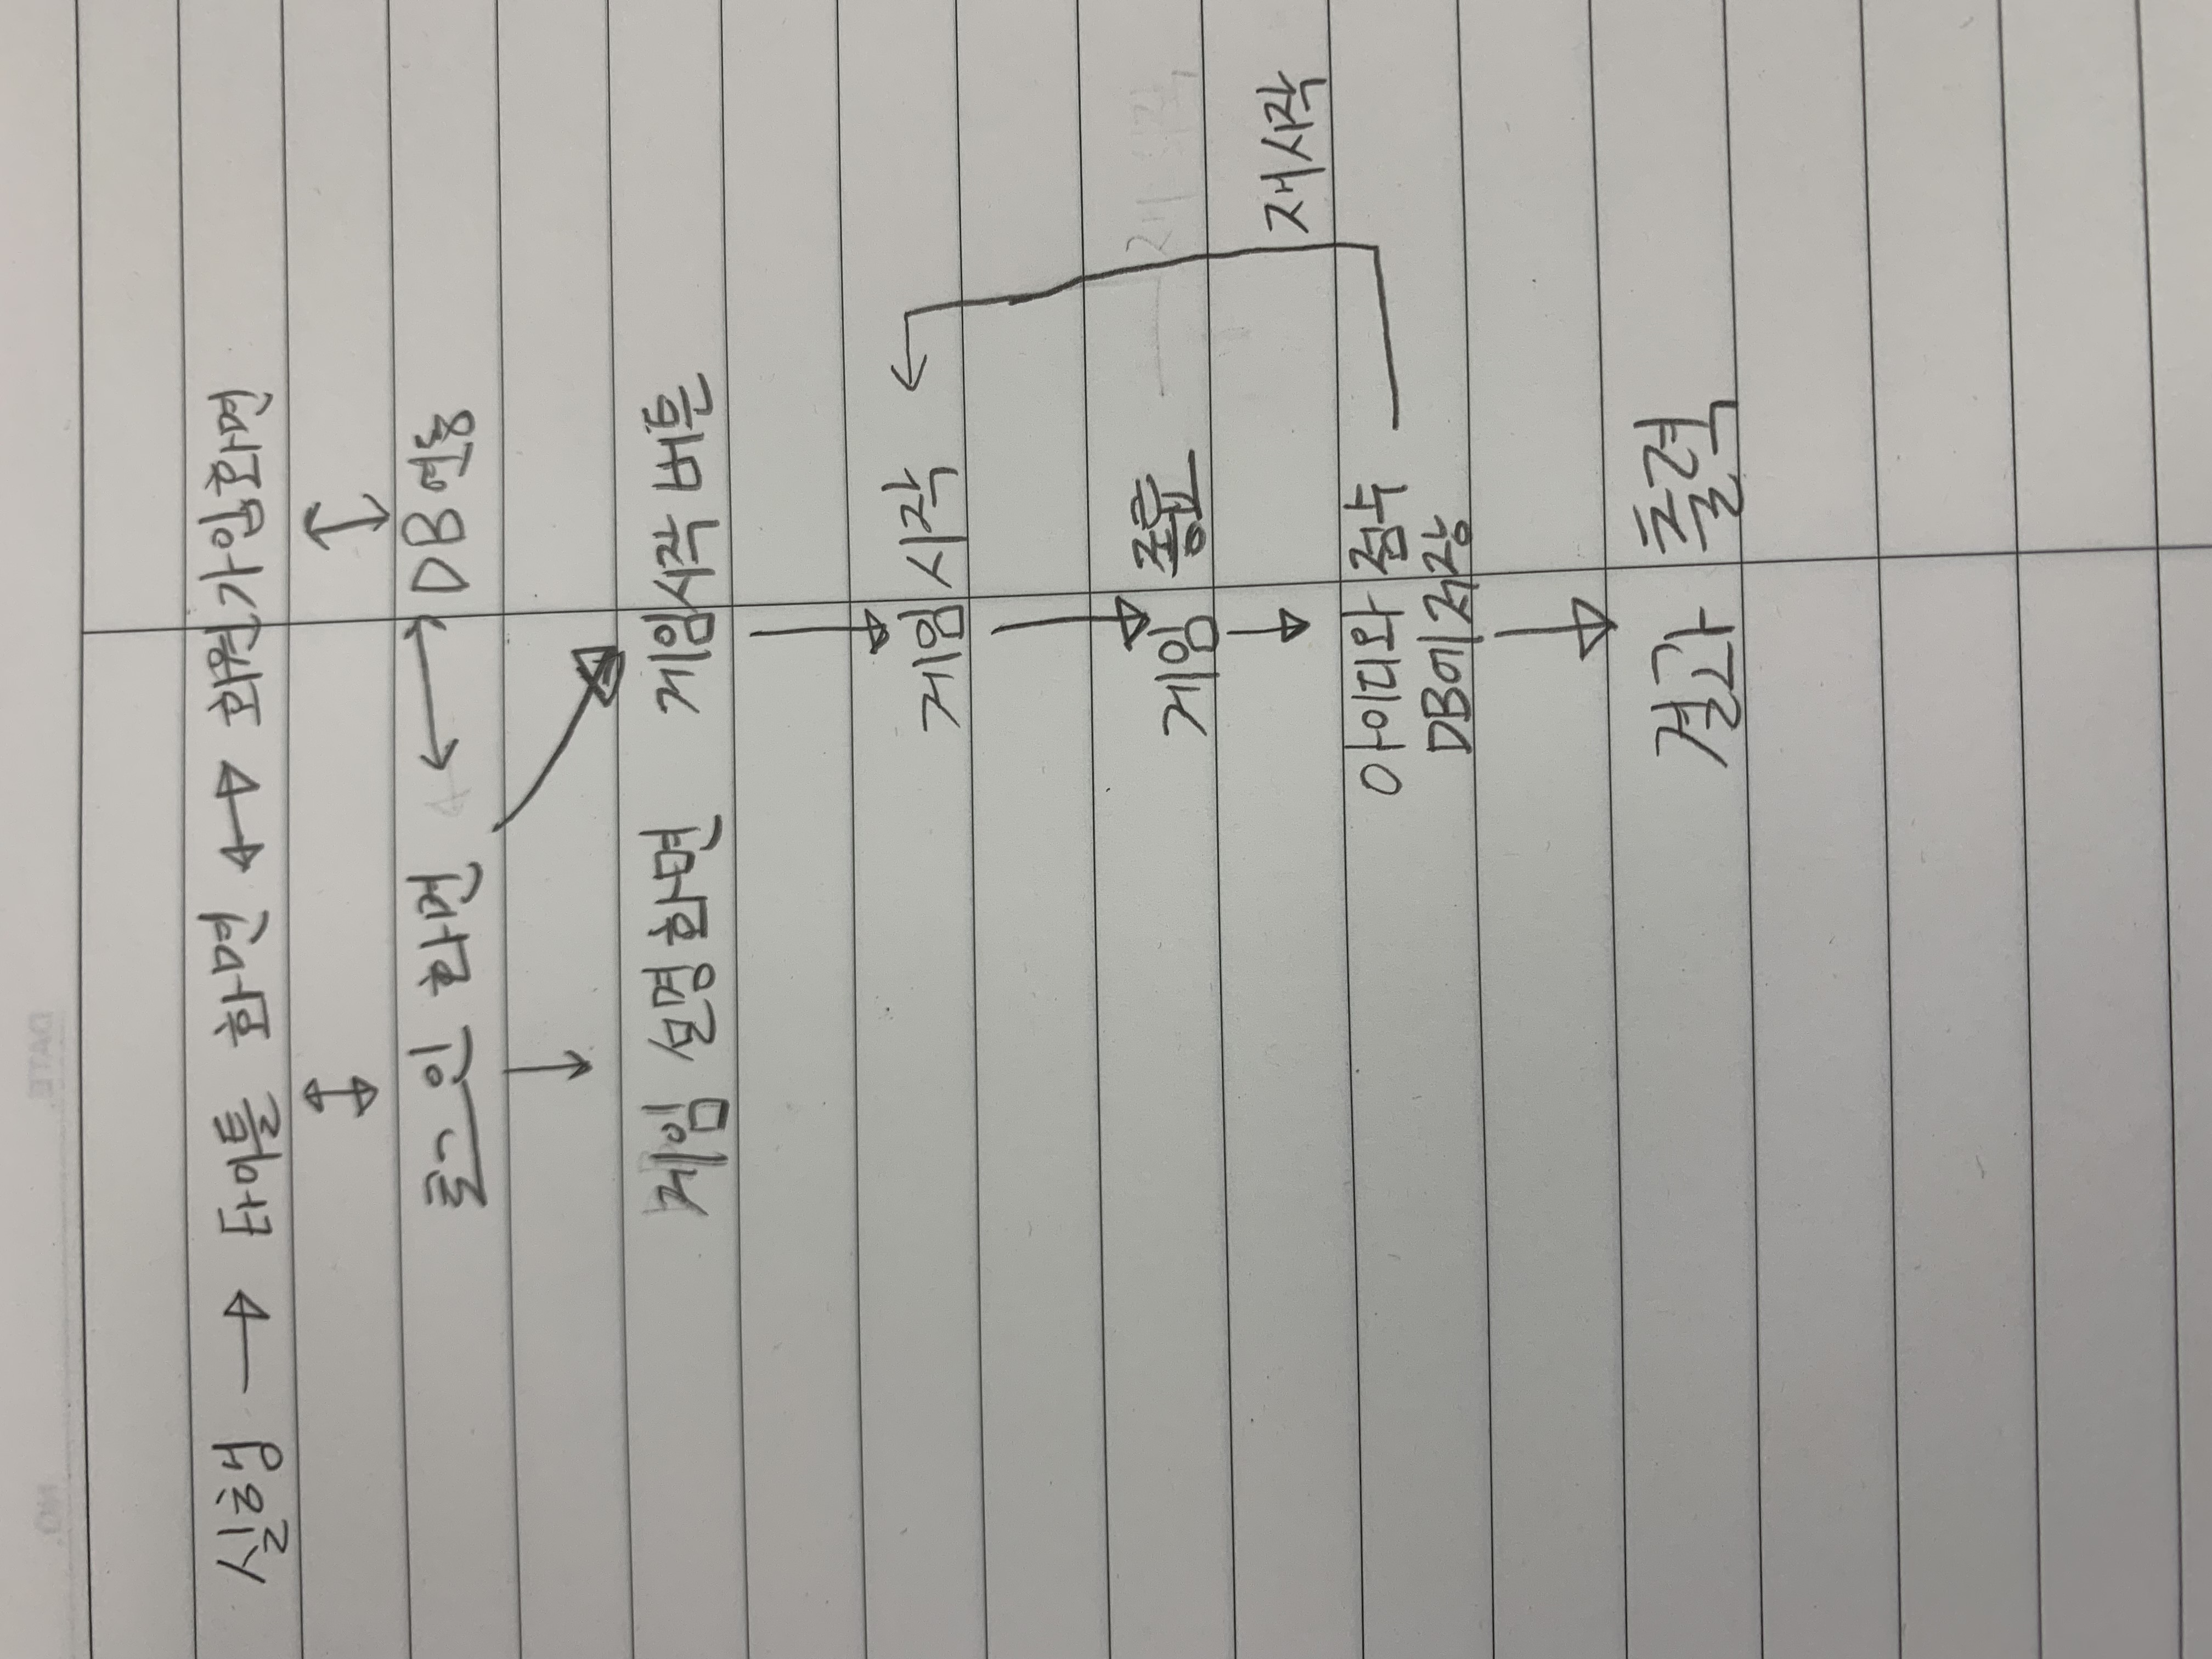 실행 → 타이틀 화면 ↔ 회원가입화면
로그인 화면 ↔ DB연동
게임 설명화면 게임시작 버튼
게임 시작
게임 종료
재시작
아이디와 점수
DB에 저장
결과 출력